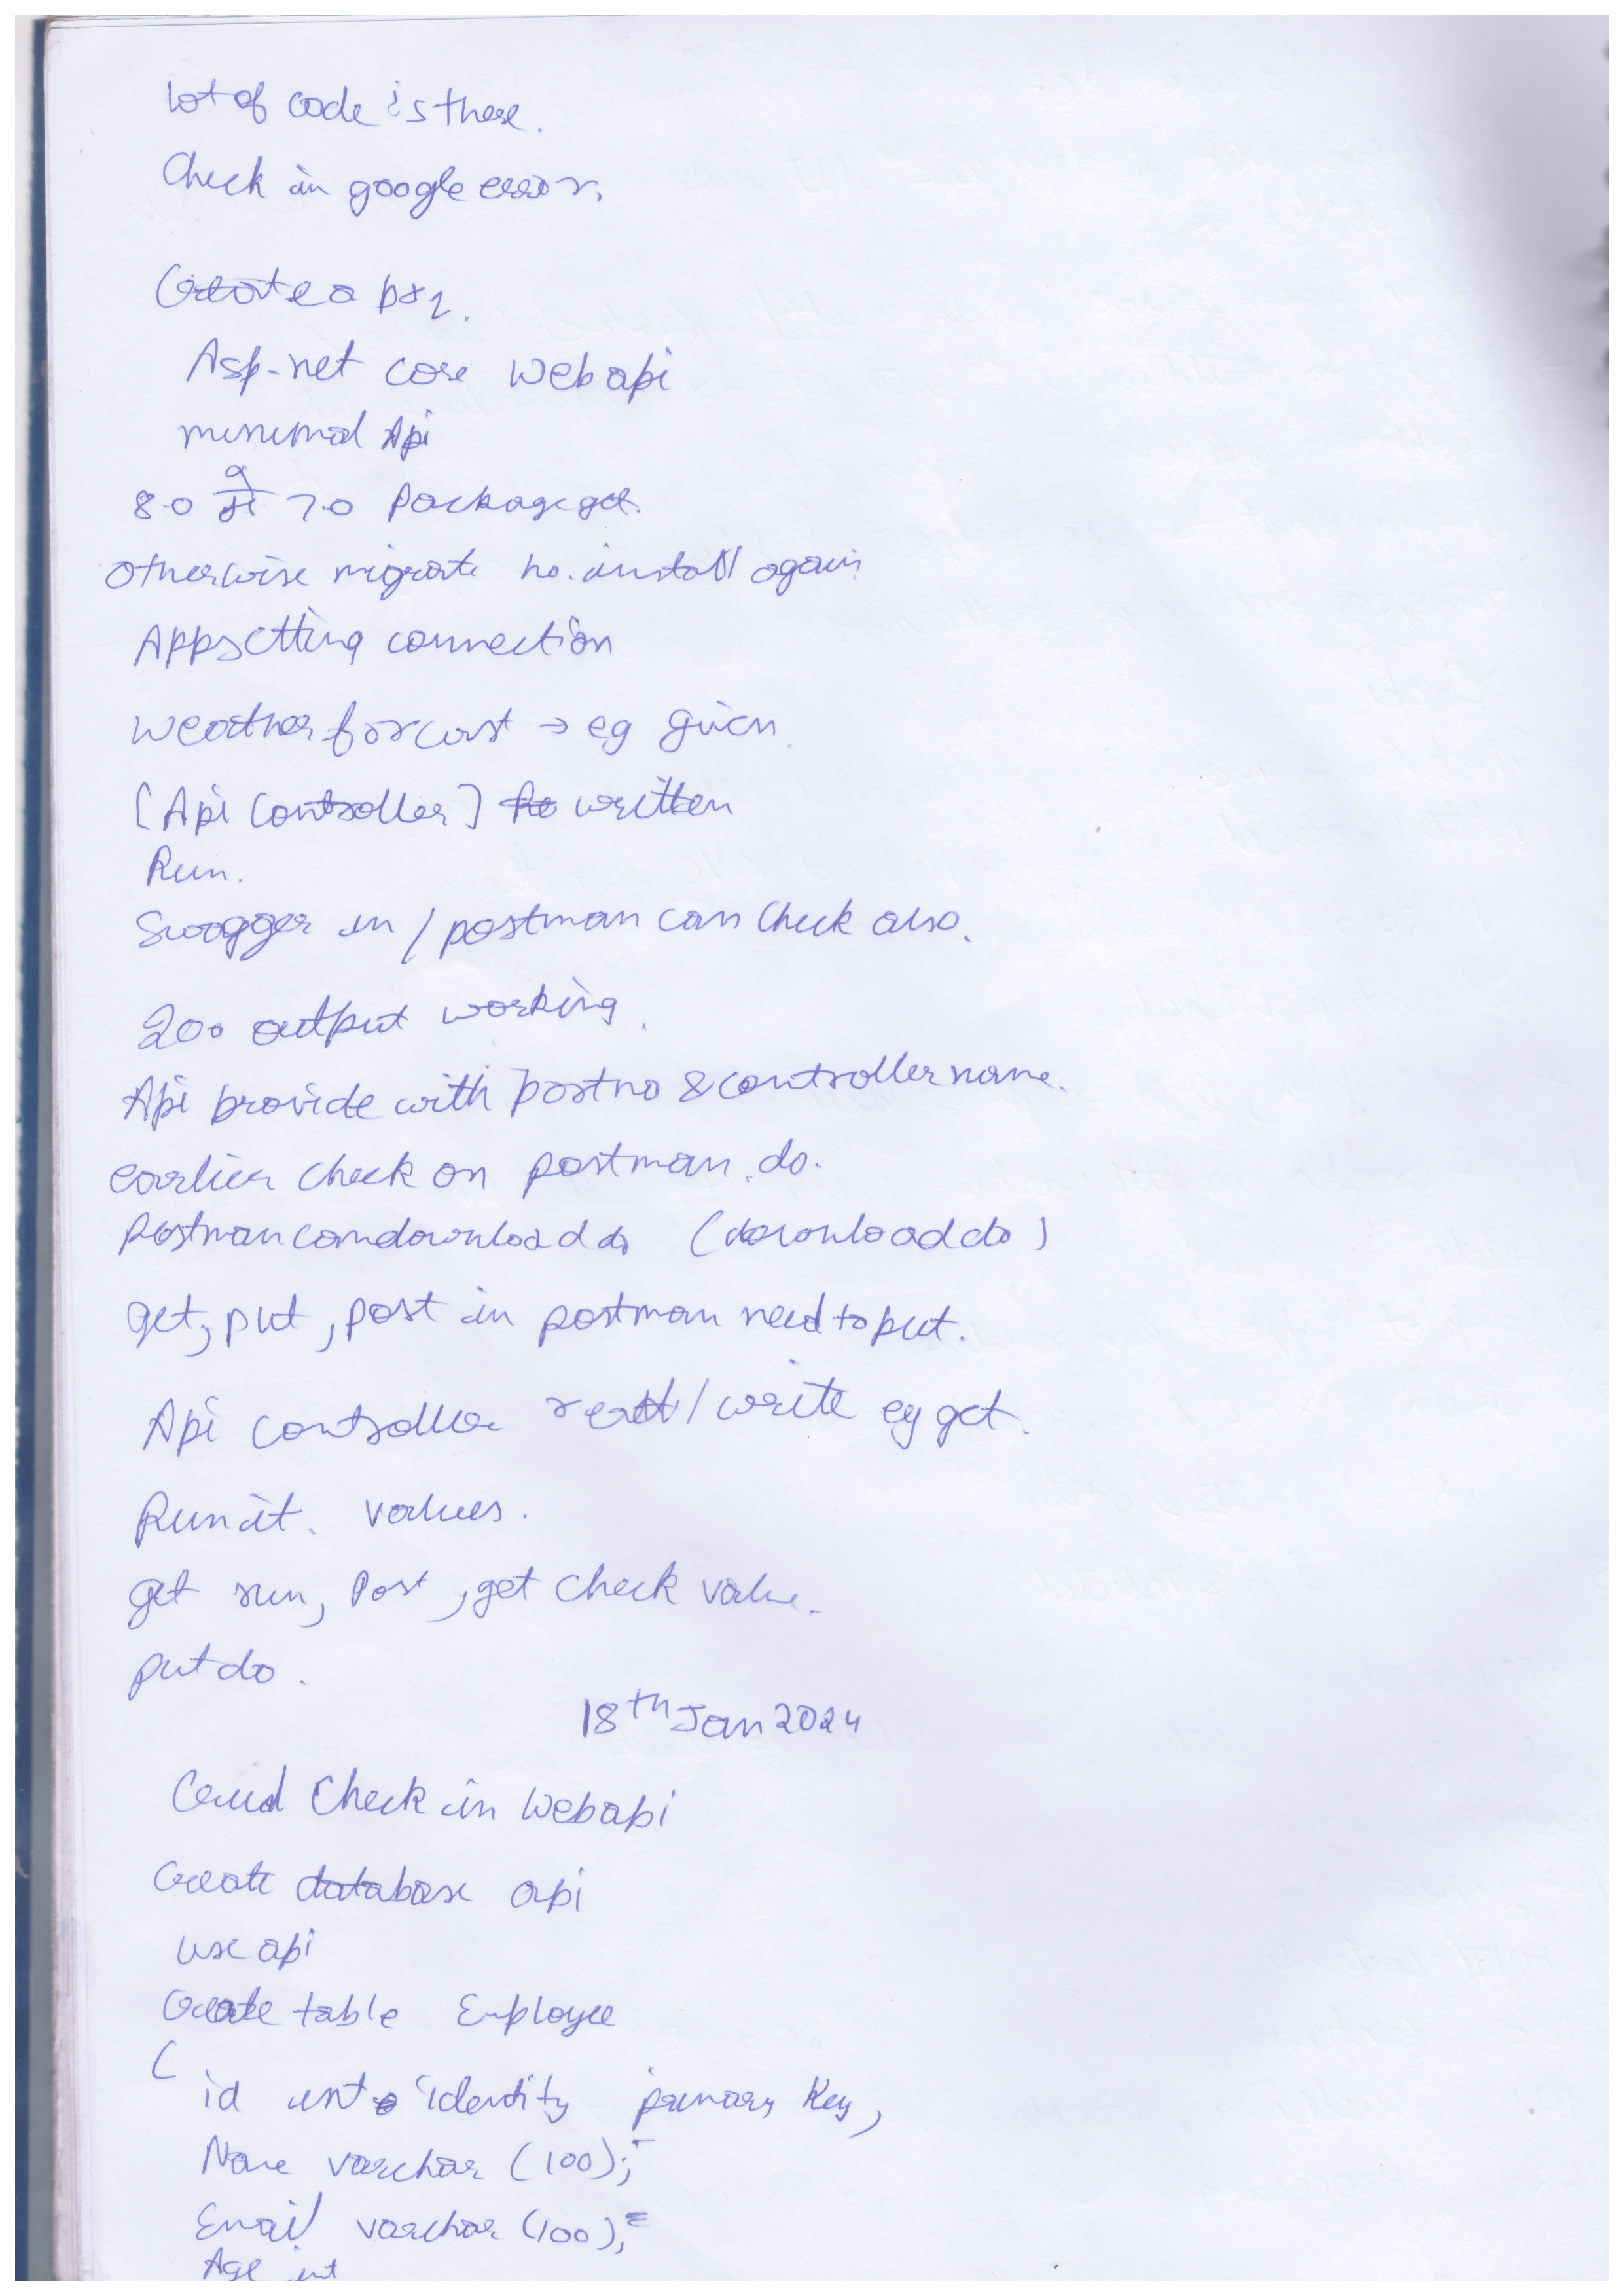 lot of code is there.
Check in google error.
Create a prj.
Asp.net core Web api
minimal Api
8.0 7.0 Package get.
Otherwise migrate no. install again
Appsetting connection
Weather forcast → eg given.
[Api Controller] written
Run.
Swagger in / postman can check also.
200 output working.
Api provide with portno & controller name.
earlier check on postman. do.
Postman can download do (download do)
get, put, post in postman need to put.
Api controller read / write eg get.
Run it. values.
get run, Post, get check value.
put do.
18th Jan 2024
Crud Check in Webapi
Create database api
use api
Create table Employee
(
id int identity primary key,
Name varchar (100),
Email varchar (100),
Age int